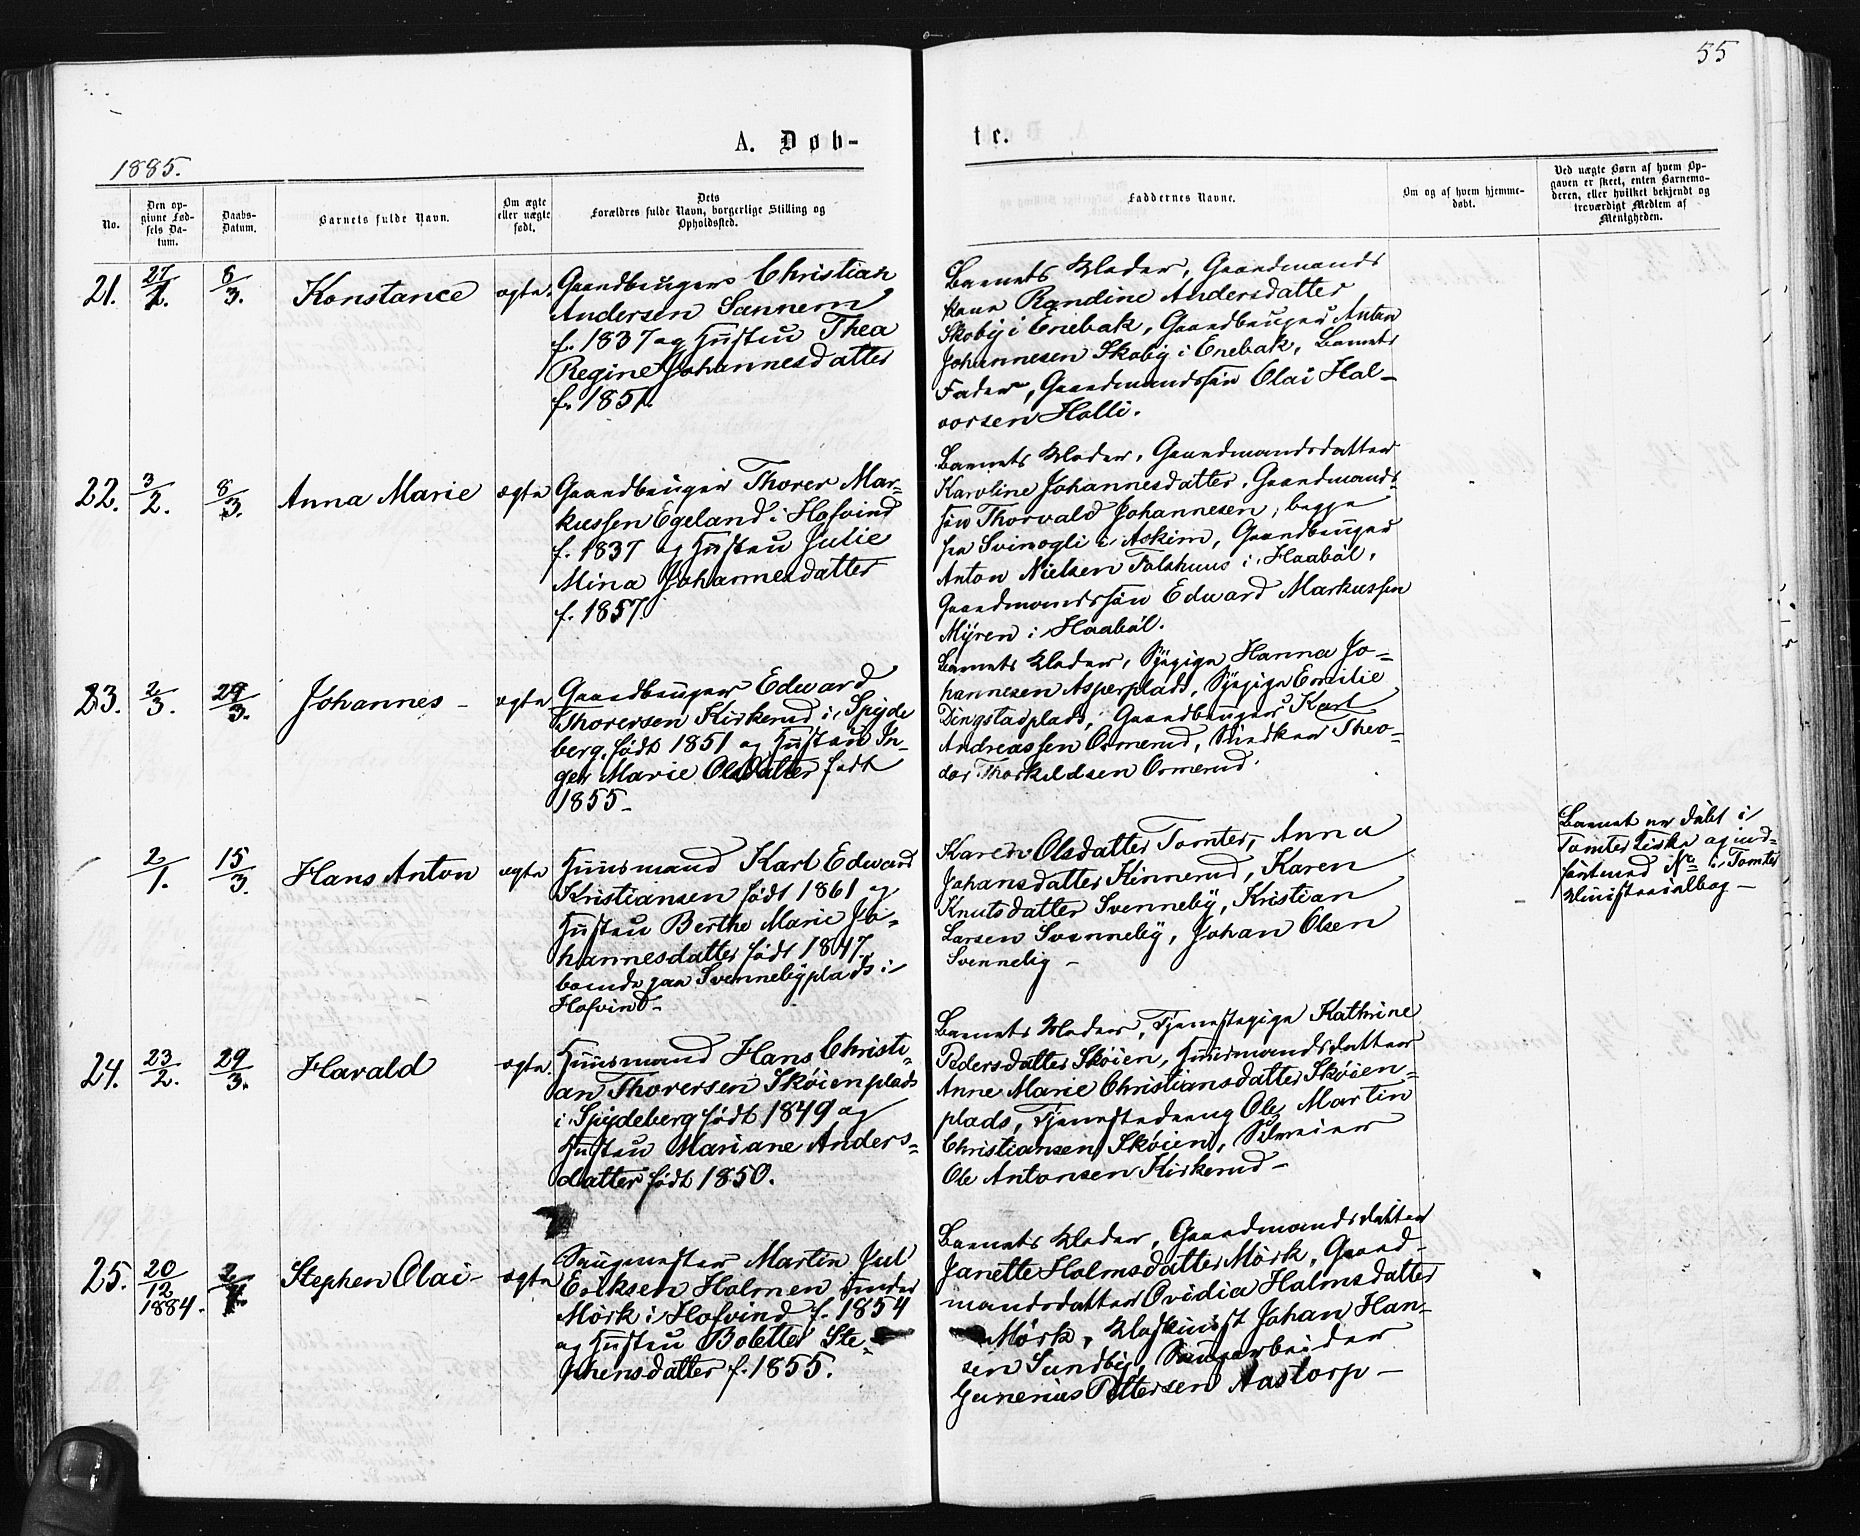 55
A. Døb-
te.
1885.
No.
Den op-
givne Fød-
sels Da-
tum.
Daabs-
Datum.
Barnets fulde Navn.
Om ægte
eller uægte
født.
Dets
Forældres fulde Navn, borgerlige Stilling og
Opholdssted.
Faddernes Navne.
Om og af hvem hjemme-
døbt.
Ved uægte Børn af hvem Op-
gaven er skeet, enten Barnemo-
deren, eller hvilket bekjendt og
troværdigt Medlem af
Menigheden.
21.
27/1.
8/3.
Konstance
ægte.
Gaardbruger Christian
Andersen Sannem
f. 1837 og Hustru Thea
Regine Johannesdatter
f. 1851.
Barnets Moder, Gaardmands
kone Randine Andersdatter
Skoby i Enebak, Gaardbruger Anton
Johannesen Skoby i Enebak, Barnets
Fader, Gaardmandssøn Olai Hal-
vorsen Holli.
22.
3/2.
8/3.
Anna Marie
ægte
Gaardbruger Thorer Mar-
kussen Egeland i Hofvind
f. 1837 og Hustru Julie
Mina Johannesdatter
f. 1857.
Barnets Moder, Gaardmandsdatter
Karoline Johannesdatter, Gaardmands-
søn Thorvald Johannesen, begge
fra Svinogli i Askim, Gaardbruger
Anton Nielsen Folshuus i Haabøl,
Gaardmandssøn Edward Markussen
Myren i Haabøl.
23.
2/3.
29/3.
Johannes
ægte
Gaardbruger Edward
Thorersen Kirkerud i Spyde
berg, født 1851 og Hustru In-
ger Marie Olsdatter født
1855
Barnets Moder, Sypige Hanna Jo-
hannesen Asperplads, Sypige Emilie
Dingstadplads, Gaardbruger Karl
Andreassen Ormerud, Snedker Theo-
dor Thorkildsen Ormerud.
2/1.
15/3.
Hans Anton
ægte
Huusmand Karl Edward
Kristiansen født 1861 og
Hustru Berthe Marie Jo-
hannesdatter født 1847.
boende paa Svennebyplads i
Hofvind
Karen Olsdatter Tomter, Anna
Johansdatter Kinnerud, Karen
Knutsdatter Svenneby, Kristian
Larsen Svenneby, Johan Olsen
Svenneby
Barnet er døbt i
Tomter Kirke og ind-
ført med No i Tomter
Ministerialbog
24.
23/2.
29/3.
Harald
ægte.
Huusmand Hans Christi-
an Thorersen Skøienplads
i Spydeberg født 1849 og
Hustru Mariane Anders-
datter født 1850.
Barnets Moder, Tjenestepige Kathrine
Pedersdatter Skøien, Huusmandsdatter
Anne Marie Christiansdatter Skøien-
plads, Tjenestedreng Ole Martin
Christiansen Skøien,
Ole Antonsen Kirkerud
25.
20/12
1884.
2/4.
Stephen Olai
ægte
Saugmester Martin Jul
Eriksen Holmen under
Mørk i Hofvind f. 1854
og Hustru Bolette Ste-
phensdatter f. 1855.
Barnets Moder, Gaardmandsdatter
Janette Holmsdatter Mørk, Gaard-
mandsdatter Ovidia Holmsdatter
Mørk, Maskinist Johan Han-
sen Sundby, Saugarbeider
Gunerius Pettersen Aastorp